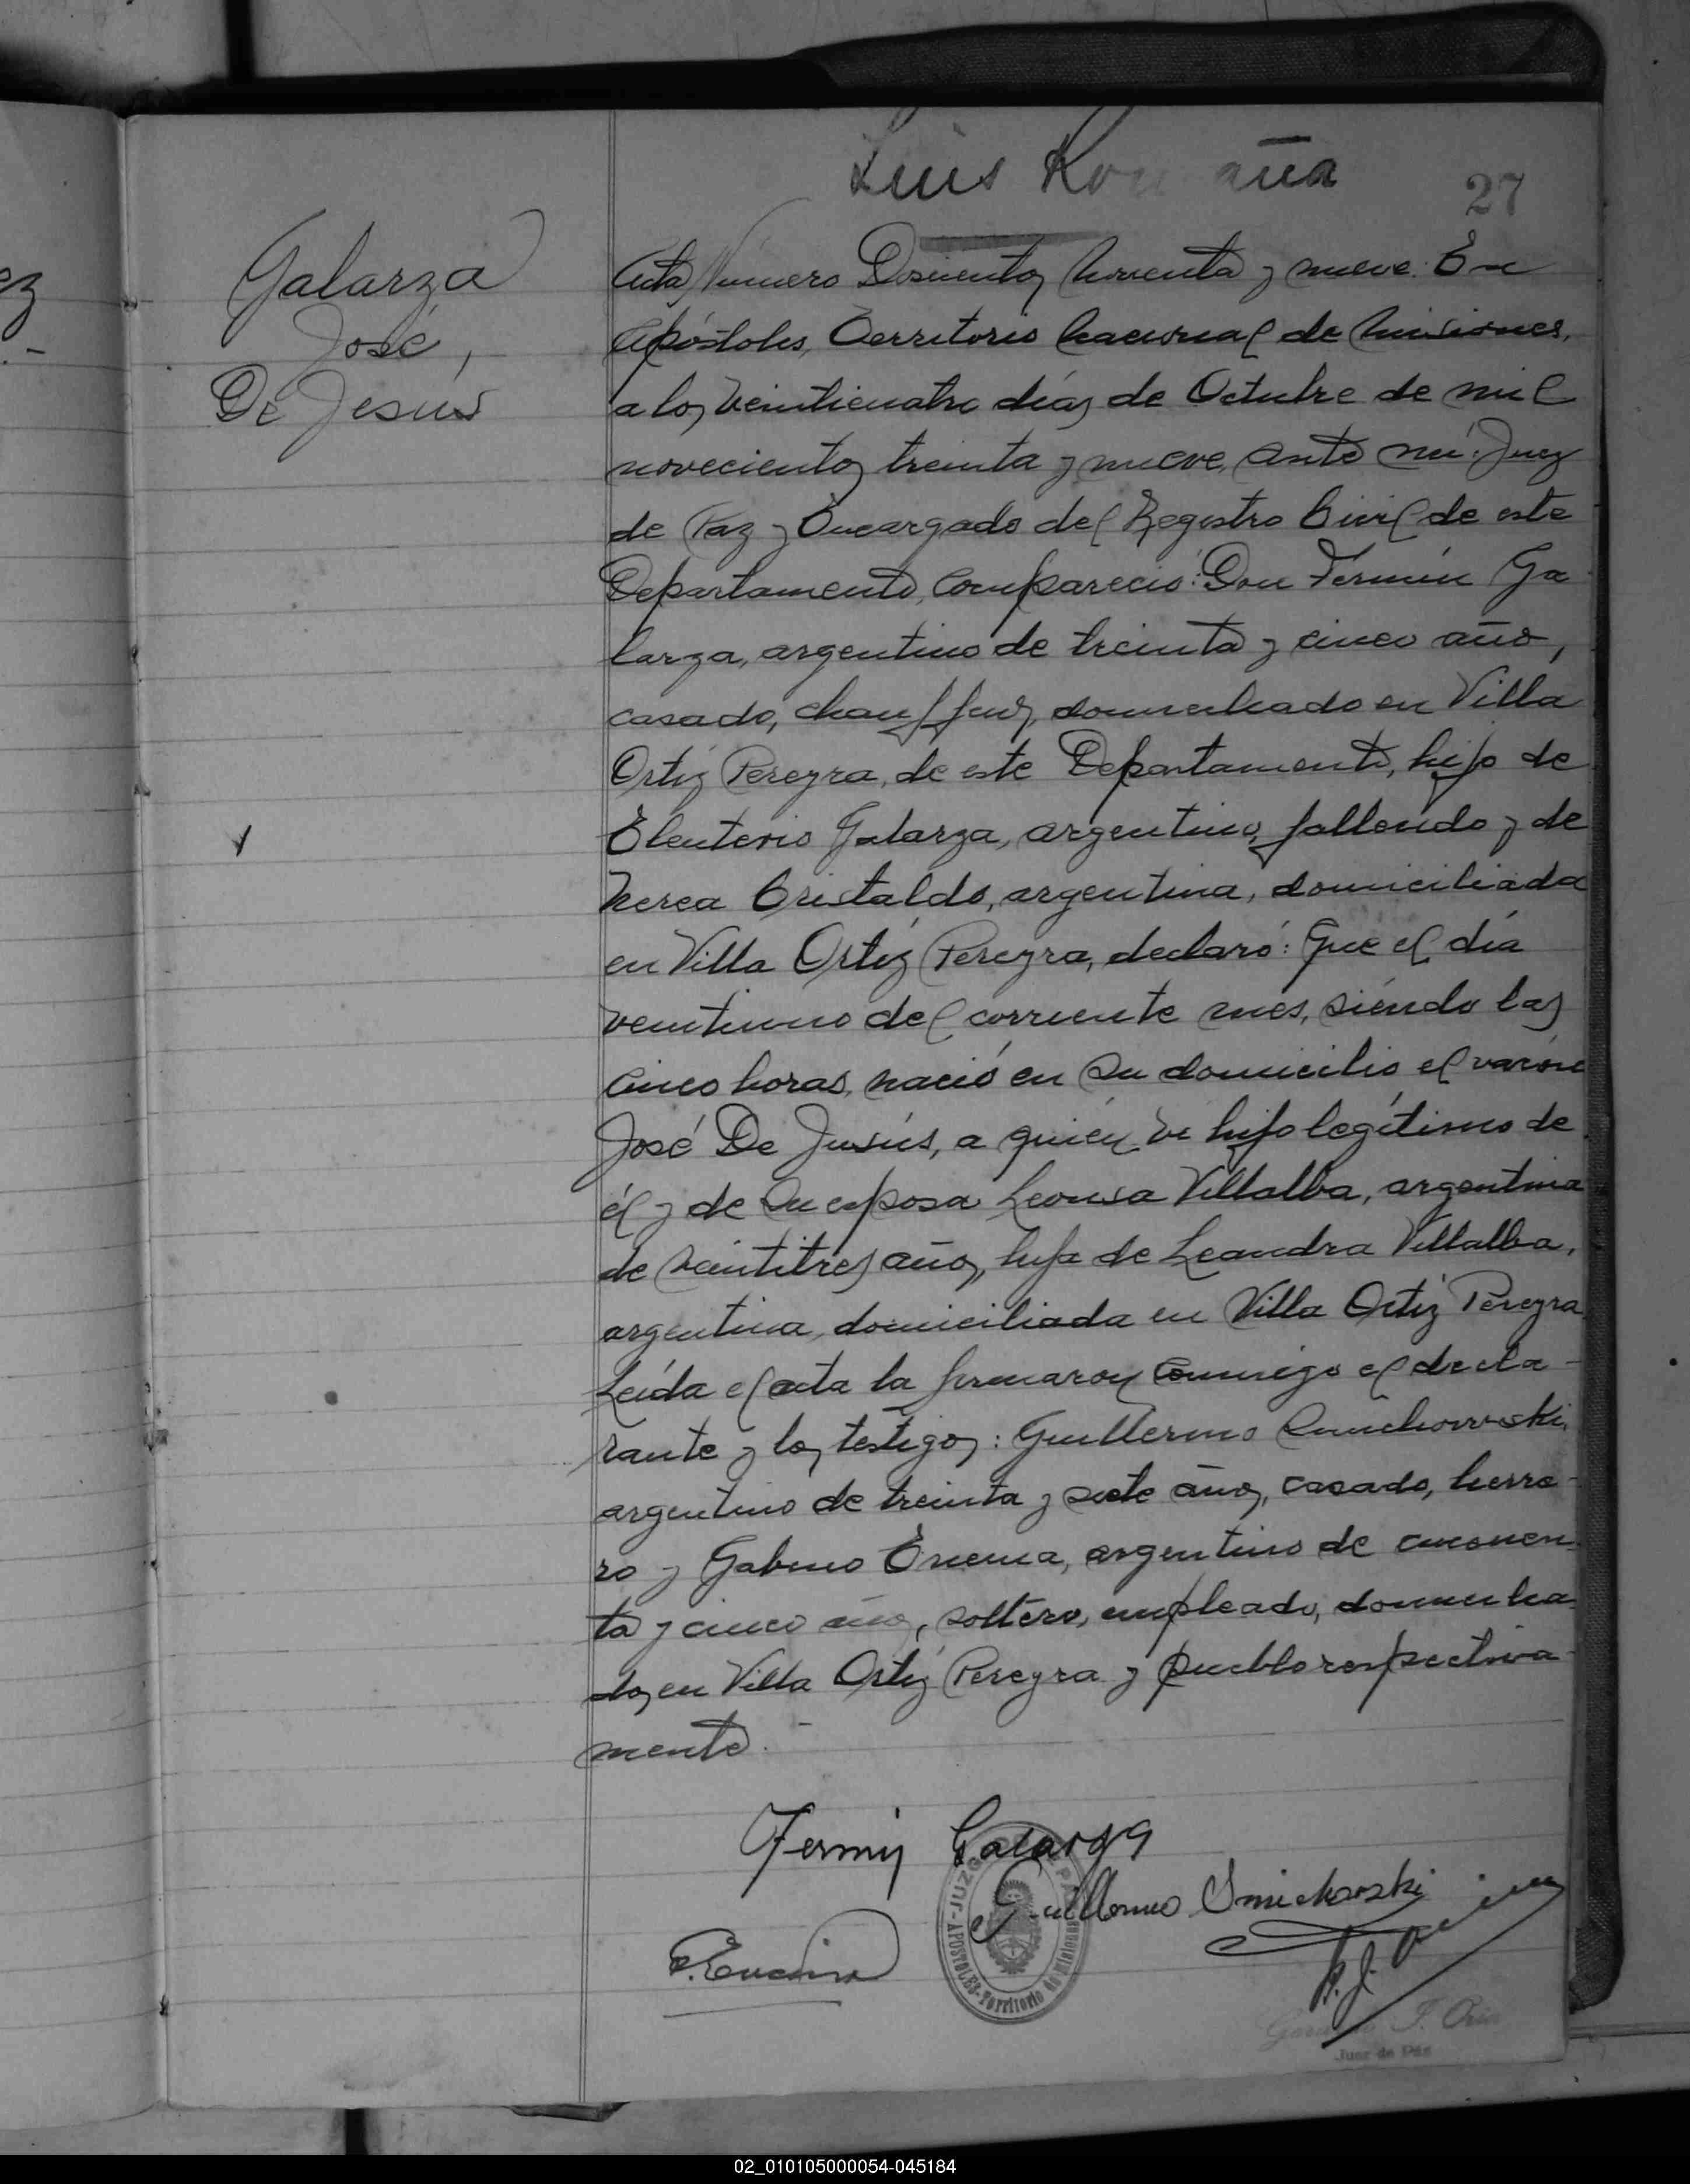 Luis
27
Galarza
José,
De Jesús
Acta Número Doscientos noventa y nueve. En
Apóstoles, Territorio Nacional de Misiones,
a los veinticuatro días de Octubre de mil
novecientos treinta y nueve, ante mí: Juez
de Paz y Encargado del Registro Civil de este
Departamento, compareció: Don Fermín Ga
larza, argentino de treinta y cinco años,
casado, chauffeur, domiciliado en Villa
Ortiz Pereyra, de este Departamento, hijo de
Eleuterio Galarza, argentino, fallecido y de
Nerea Cristaldo, argentina, domiciliada
en Villa Ortiz Pereyra, declaró: Que el día
veintiuno del corriente mes, siendo las
cinco horas, nació en su domicilio el varón
José De Jesús, a quién vi hijo legítimo de
él y de su esposa Leonsa Villalba, argentina
de veintitres años, hija de Leandra Villalba,
argentina, domiciliada en Villa Ortiz Pereyra
Leída el acta la firmaron conmigo el decla-
rante y los testigos: Guillermo
argentino de treinta y siete años, casado, herre-
ro y Gabino Encina, argentino de cincuen-
ta y cinco años, soltero, empleado, domicilia
dos en Villa Ortiz Pereyra y pueblo respectiva-
mente.-
Fermin Galarza
Guillermo Smichoski
G. Encina
JUZGADO DE PAZ
-APOSTOLES-Territorio de Misiones
J. Oria
Juez de Paz
02_010105000054-045184